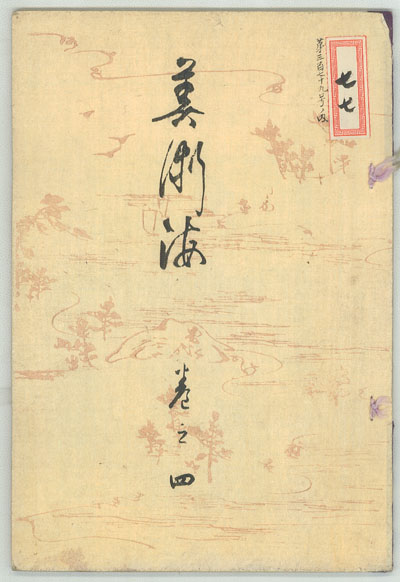 第三百七十九号ノ内
七七
美術海
巻之四